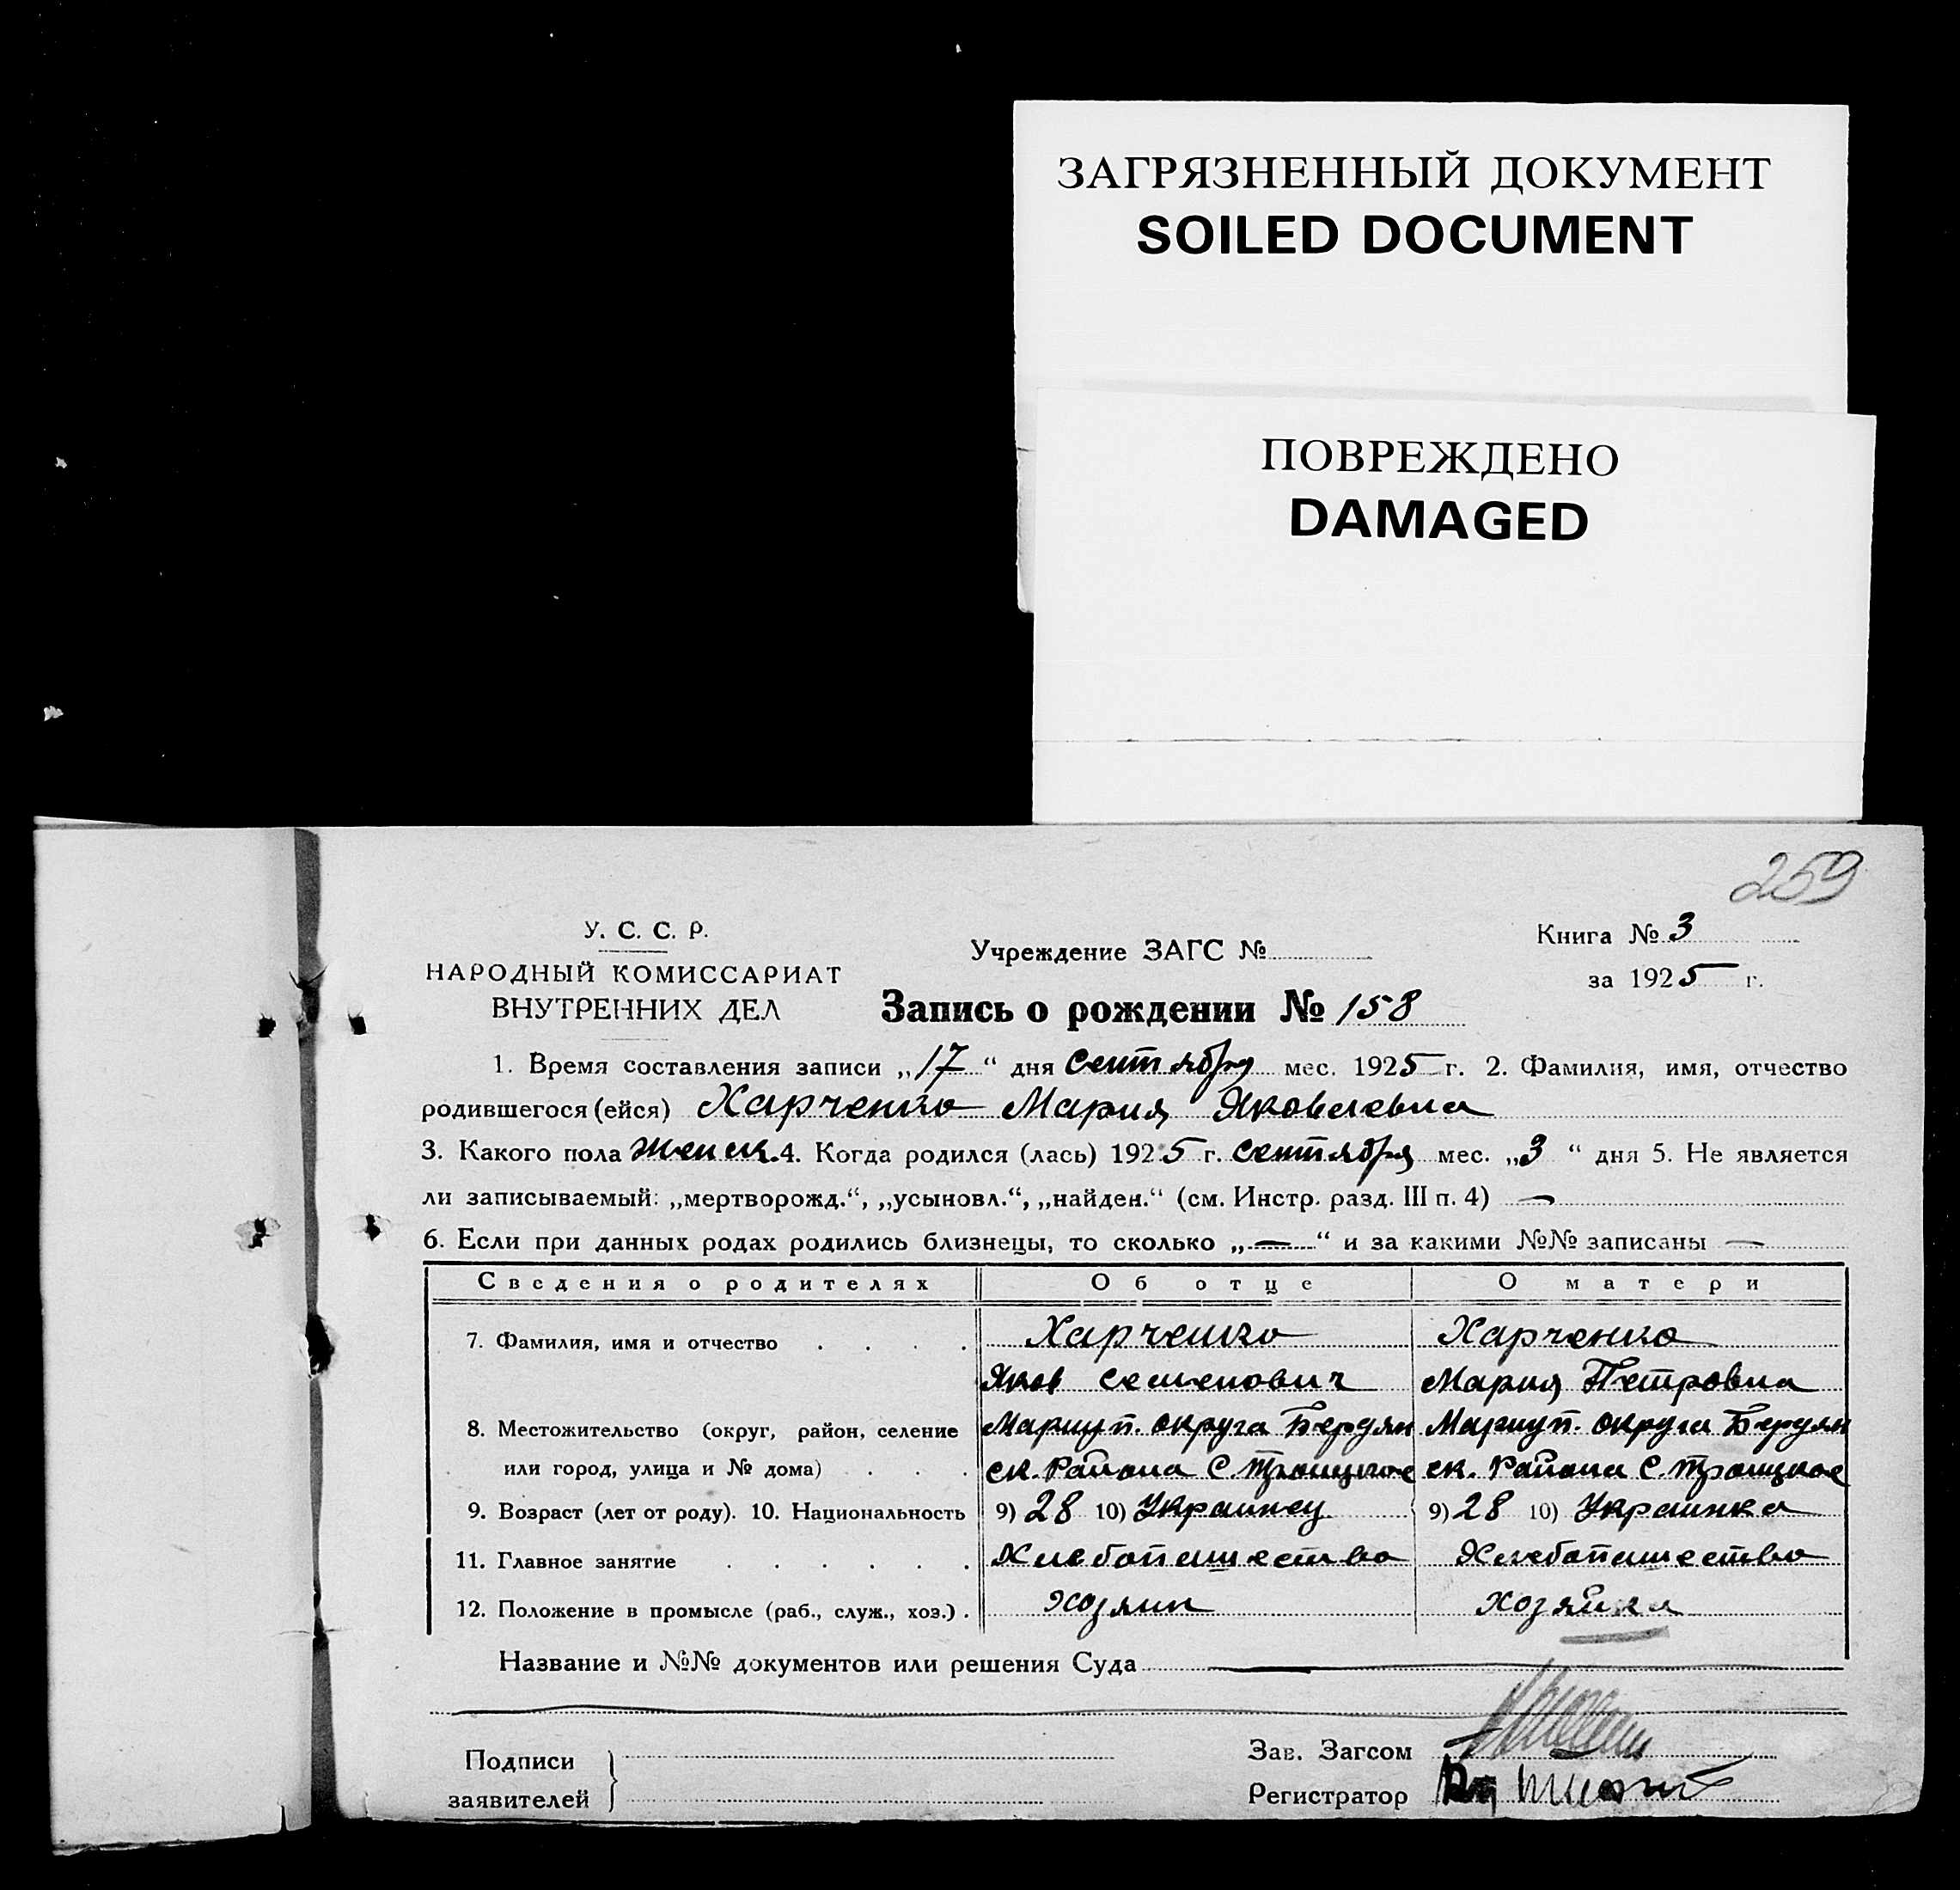 ЗАГРЯЗНЕННЫЙ ДОКУМЕНТ
SOILED DOCUMENT
ПОВРЕЖДЕНО
DAMAGED
259
У. С. С. Р.
НАРОДНЫЙ КОМИССАРИАТ
ВНУТРЕННИХ ДЕЛ
Учреждение ЗАГС №
Книга № 3
за 1925 г.
Запись о рождении № 158
1. Время составления записи „17“ дня сентября мес. 1925 г. 2. Фамилия, имя, отчество
родившегося (ейся) Харченко Мария Яковлевна
3. Какого пола женск. 4. Когда родился (лась) 1925 г. сентября мес. „3“ дня 5. Не является
ли записываемый: „мертворожд.“, „усыновл.“, „найден.“ (см. Инстр. разд. III п. 4) —
6. Если при данных родах родились близнецы, то сколько „—“ и за какими №№ записаны —
Сведения о родителях Об отце О матери
7. Фамилия, имя и отчество . . . . Харченко Харченко
Яков Семенович Мария Петровна
8. Местожительство (округ, район, селение Мариуп. округа Бердян Мариуп. округа Бердян
или город, улица и № дома) . . . ск. Района С. Троицкое ск. Района С. Троицкое
9. Возраст (лет от роду). 10. Национальность 9) 28 10) Украинец 9) 28 10) Украинка
11. Главное занятие . . . . . . Хлебопашество Хлебопашество
12. Положение в промысле (раб., служ., хоз.) . хозяин хозяйка
Название и №№ документов или решения Суда
Подписи
заявителей
Зав. Загсом
Регистратор